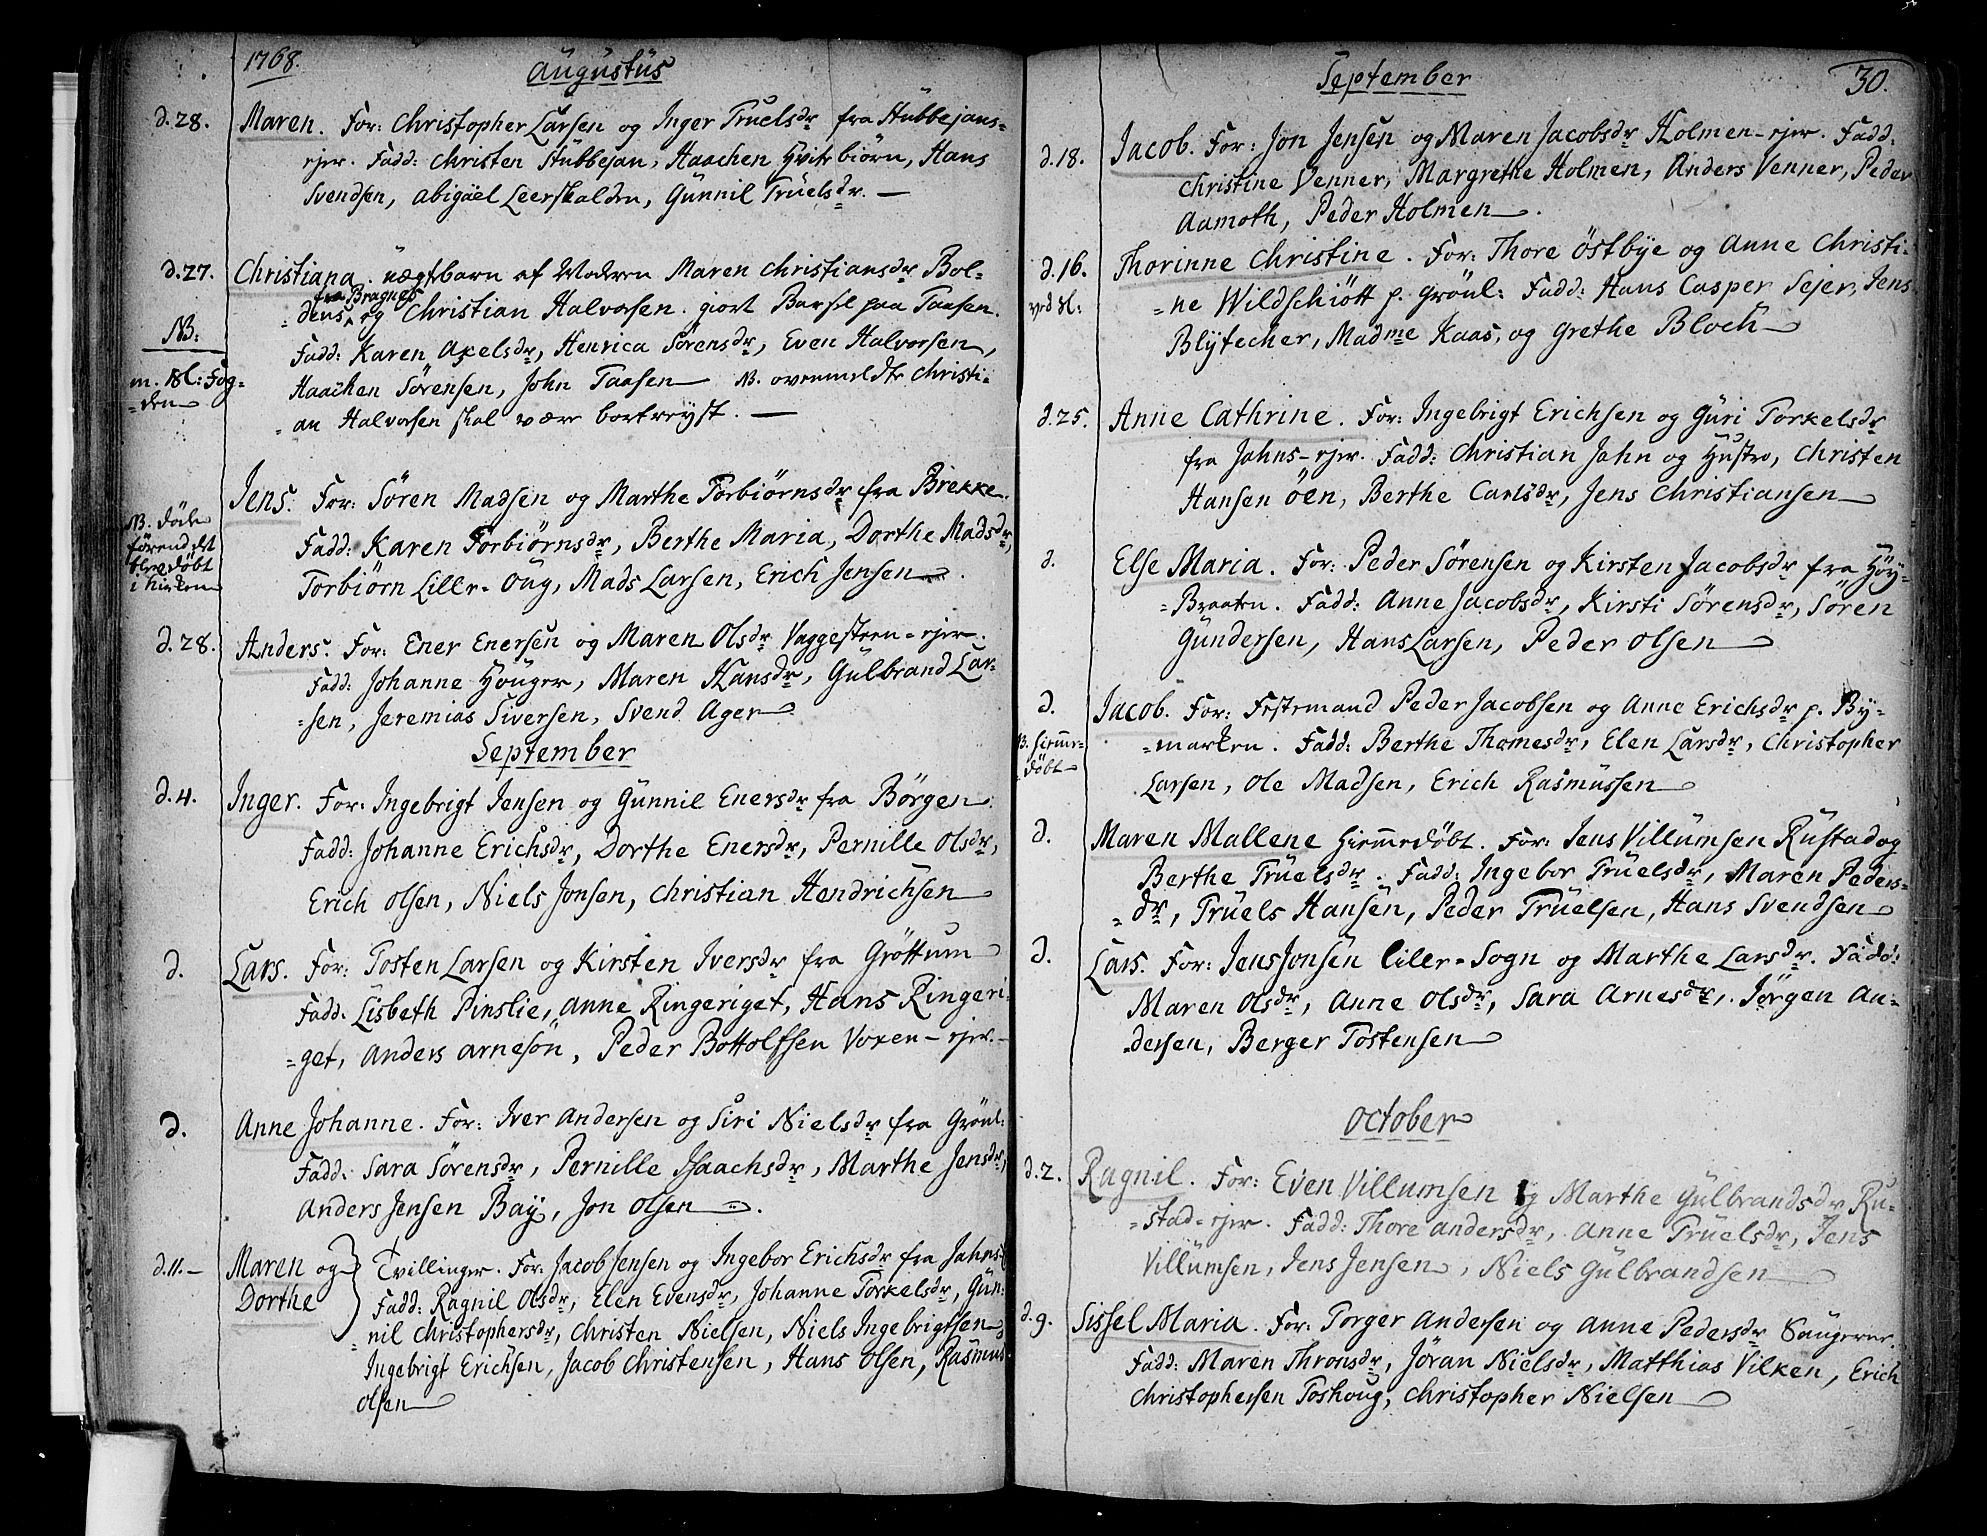 1768.
Augustus
d. 28. Maren. For: Christopher Larsen og Inger Truelsdr fra Stubbejans-
ejer. Fadd: Christen Stubbejan, Haachen Hvitebiørn, Hans
Svendsen, Abigael Leerskalden, Gunnil Truelsdr. —
d. 27. Christiana. uægtbarn af Moderen Maren Christiansdr Bol-
fra Bragnes
-dens og Christian Halvorsen. giort Barsel paa Taasen.
NB: Fadd: Karen Axelsdr, Henrica Sørensdr, Even Halvorsen,
m. Bl: Fog- Haachen Sørensen, John Taasen NB. ovenmeldte Christi-
-den -an Halvorsen skal være bortreyst. —
Jens. For: Sören Madsen og Marthe Torbiørnsdr fra Brekke.
NB. døde
førend det Fadd: Karen Torbiørnsdr, Berthe Maria, Dorthe Madsdr,
blev døbt
i kirken Torbiørn Lille-Oug, Mads Larsen, Erich Jensen.
d. 28. Anders. For: Ener Enersen og Maren Olsdr Vaggesteen-ejer.
Fadd: Johanne Höuger, Maren Hansdr, Gulbrand Lar-
-sen, Jeremias Siversen, Svend Ager
September
d. 4. Inger. For: Ingebrigt Jensen og Gunnil Enersdr fra Börgen.
Fadd: Johanne Erichsdr, Dorthe Enersdr, Pernille Olsdr,
Erich Olsen, Niels Jonsen, Christian Hendrichsen
d. Lars. For: Tosten Larsen og Kirsten Iversdr fra Gröttum
Fadd: Lisbeth Pinslie, Anne Ringeriget, Hans Ringeri-
-get, Anders Arnesön, Peder Bottolfsen Voxen-ejer.-
d. Anne Johanne. For: Iver Andersen og Siri Nielsdr fra Grönl:
Fadd: Sara Sörensdr, Pernille Isaachsdr, Marthe Jensdr,
Anders Jensen Bay, Jon Olsen.
d. 11.- Maren og Tvillinger. For: Jacob Jensen og Ingebor Erichsdr fra Jahns-
Dorthe Fadd: Ragnil Olsdr, Elen Evensdr, Johanne Torkelsdr, Gun-
-nil Christophersdr, Christen Nielsen, Niels Ingebrigtsen,
Ingebrigt Erichsen, Jacob Christensen, Hans Olsen, Rasmus
Olsen
September 30.
d. 18. Jacob. For: Jon Jensen og Maren Jacobsdr Holmen-ejer. Fadd:
Christine Venner, Margrethe Holmen, Anders Venner, Peder
Aamoth, Peder Holmen.
d. 16. Thorinne Christine. For: Thore Östbye og Anne Christi-
-ne Wildschiött p. Grönl: Fadd: Hans Casper Sejer, Jens
Blytecher, Madme Kaas, og Grethe Bloch
d. 25. Anne Cathrine. For: Ingebrigt Erichsen og Guri Torkelsdr
fra Jahns-ejer. Fadd: Christian Jahn og Hustro, Christen
Hansen Öen, Berthe Carlsdr, Jens Christiansen
d. Else Maria. For: Peder Sörensen og Kirsten Jacobsdr fra Höy-
-Braaten. Fadd: Anne Jacobsdr, Kirsti Sörensdr, Sören
Gundersen, Hans Larsen, Peder Olsen
d. Jacob. For: Festemand Peder Jacobsen og Anne Erichsdr p. By-
NB. hiemme- -marken. Fadd: Berthe Thomesdr, Elen Larsdr, Christopher
døbt Larsen, Ole Madsen, Erich Rasmussen
d. Maren Mallene hiemmedöbt. For: Jens Villumsen Rustad og
Berthe Truelsdr. Fadd: Ingebor Truelsdr, Maren Peders-
-dr, Truels Hansen, Peder Truelsen, Hans Svendsen
d. Lars. For: Jens Jonsen Lille-Sogn og Marthe Larsdr. Fadd:
Maren Olsdr, Anne Olsdr, Sara Arnesdr, Jörgen An-
-dersen, Berger Tostensen
October
d. 2. Ragnil. For: Even Villumsen og Marthe Gulbrandsdr Ru-
-stad-ejer. Fadd: Thore Andersdr, Anne Truelsdr, Jens
Villumsen, Jens Jensen, Niels Gulbrandsen
d. 9. Sissel Maria. For: Torger Andersen og Anne Pedersdr Saugerne.
Fadd: Maren Thronsdr, Jöran Nielsdr, Matthias Vilken, Erich
Christophersen Toshoug, Christopher Nielsen